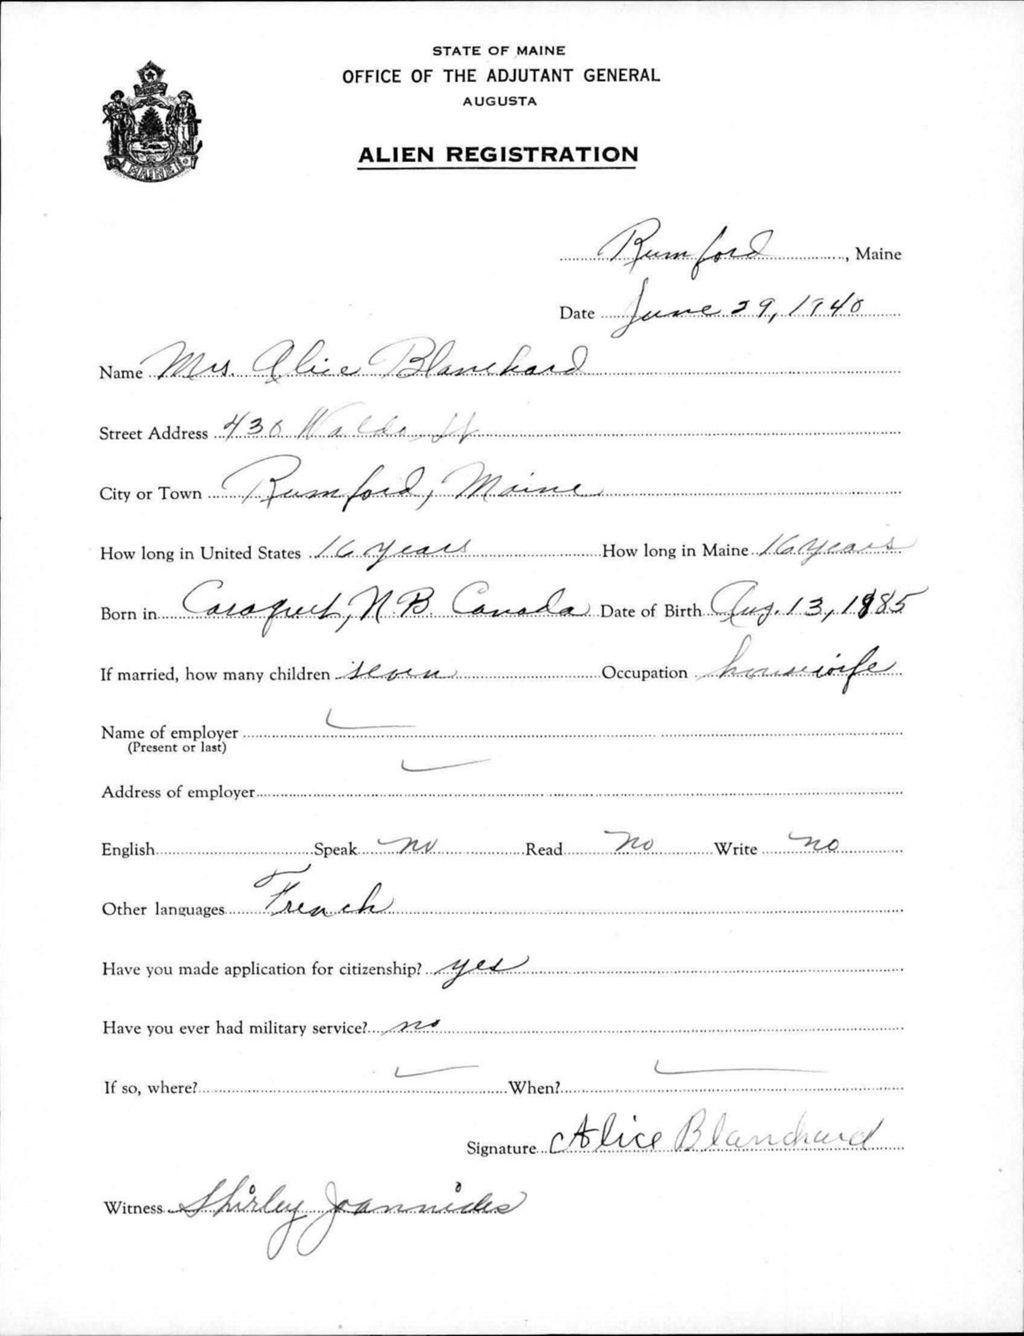 STATE OF MAINE
OFFICE OF THE ADJUTANT GENERAL
AUGUSTA
ALIEN REGISTRATION
MAINE
Rumford, Maine
Date June 29, 1940
Name Mrs. Alice Blanchard
Street Address 430 Waldo St
City or Town Rumford, Maine
How long in United States 16 years How long in Maine 16 years
Born in Caraquet, N.B. Canada Date of Birth Aug. 13, 1885
If married, how many children seven Occupation housewife
Name of employer
(Present or last)
Address of employer
English Speak no Read no Write no
Other languages French
Have you made application for citizenship? yes
Have you ever had military service? no
If so, where? When?
Signature Alice Blanchard
Witness Shirley Joannides